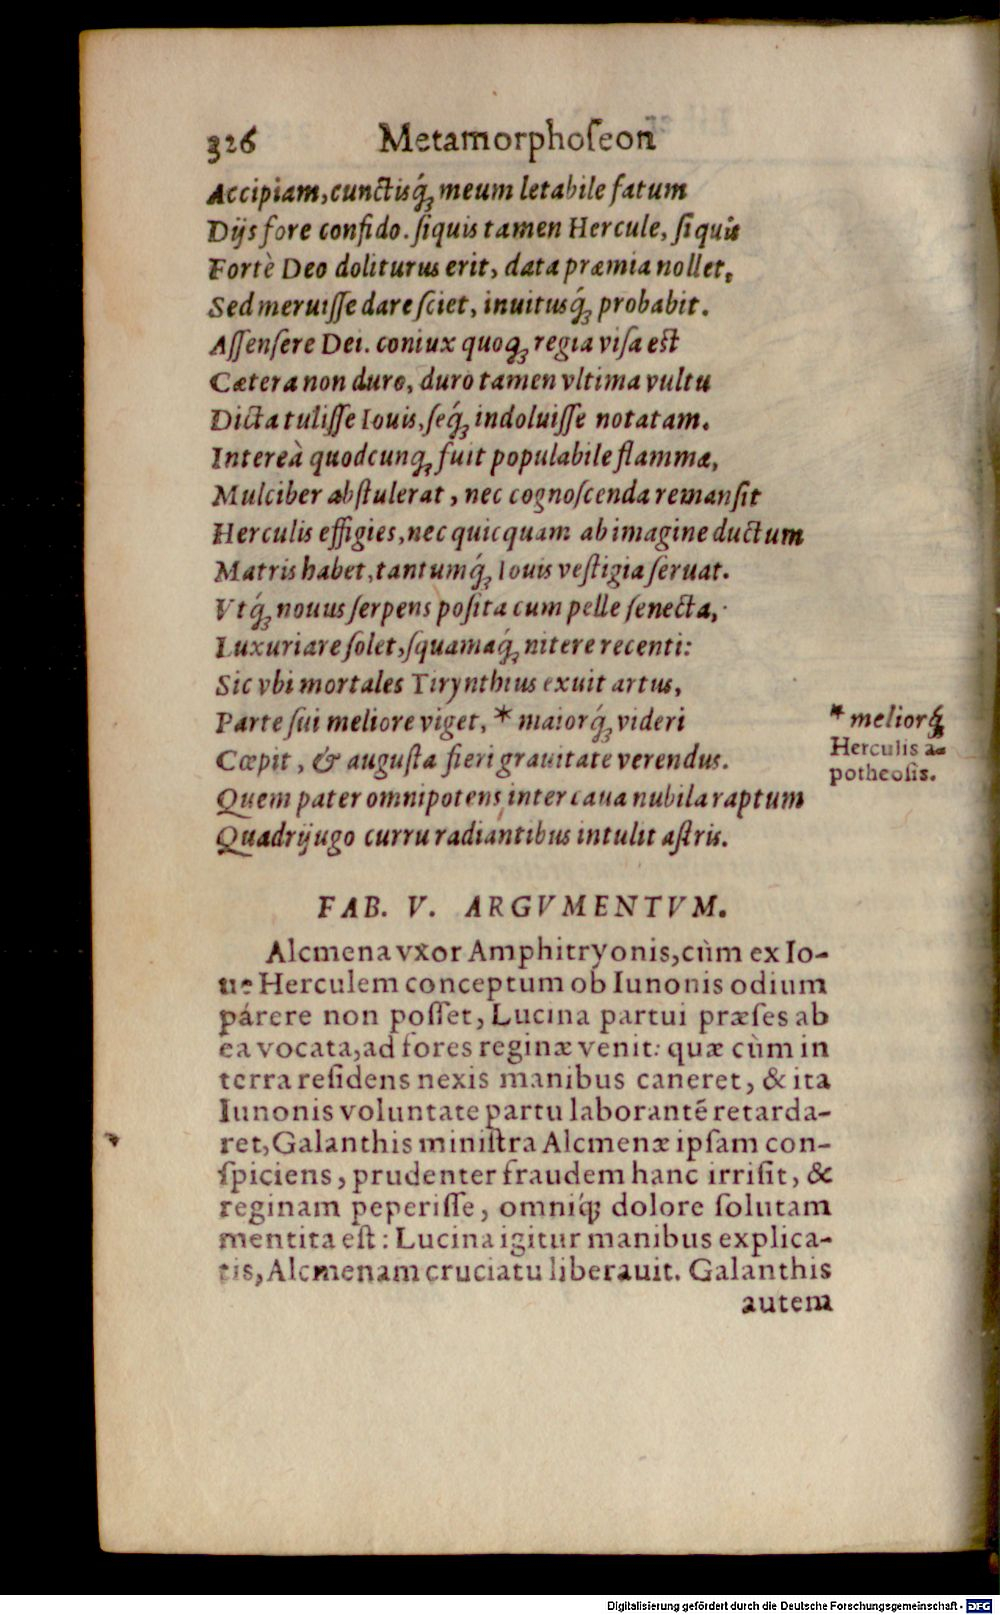 326 Metamorphoseon
Accipiam, cunctisq́ꝫ meum letabile fatum
Dijs fore confido. siquis tamen Hercule, siquis
Fortè Deo doliturus erit, data præmia nollet,
Sed meruisse dare sciet, inuitusq́ꝫ probabit.
Assensere Dei. coniux quoqꝫ regia visa est
Cætera non duro, duro tamen vltima vultu
Dicta tulisse Iouis, seq́ꝫ indoluisse notatam.
Intereà quodcunqꝫ fuit populabile flammæ,
Mulciber abstulerat, nec cognoscenda remansit
Herculis effigies, nec quicquam ab imagine ductum
Matris habet, tantumq́ꝫ Iouis vestigia seruat.
Vtq́ꝫ nouus serpens posita cum pelle senecta,
Luxuriare solet, squamaq́ꝫ nitere recenti:
Sic vbi mortales Tirynthius exuit artus,
Parte sui meliore viget, * maiorq́ꝫ videri
* meliorq́ꝫ
Cœpit, & augusta fieri grauitate verendus.
Herculis a=
potheosis.
Quem pater omnipotens inter caua nubila raptum
Quadrijugo curru radiantibus intulit astris.
FAB. V. ARGVMENTVM.
Alcmena vxor Amphitryonis, cùm ex Io-
ue Herculem conceptum ob Iunonis odium
párere non posset, Lucina partui præses ab
ea vocata, ad fores reginæ venit: quæ cùm in
terra residens nexis manibus caneret, & ita
Iunonis voluntate partu laborantẽ retarda-
ret, Galanthis ministra Alcmenæ ipsam con-
spiciens, prudenter fraudem hanc irrisit, &
reginam peperisse, omniq́ꝫ dolore solutam
mentita est: Lucina igitur manibus explica-
tis, Alcmenam cruciatu liberauit. Galanthis
autem
Digitalisierung gefördert durch die Deutsche Forschungsgemeinschaft - DFG